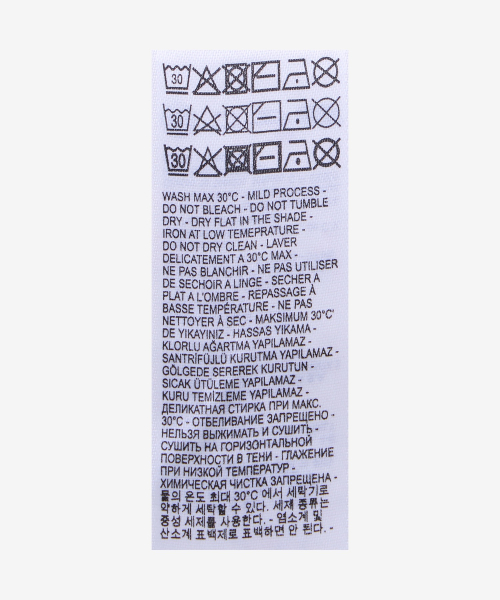 30
30
30
WASH MAX 30°C - MILD PROCESS -
DO NOT BLEACH - DO NOT TUMBLE
DRY - DRY FLAT IN THE SHADE -
IRON AT LOW TEMEPRATURE -
DO NOT DRY CLEAN - LAVER
DELICATEMENT A 30°C MAX -
NE PAS BLANCHIR - NE PAS UTILISER
DE SECHOIR A LINGE - SECHER A
PLAT A L'OMBRE - REPASSAGE À
BASSE TEMPÉRATURE - NE PAS
NETTOYER À SEC - MAKSIMUM 30°C'
DE YIKAYINIZ - HASSAS YIKAMA -
KLORLU AĞARTMA YAPILAMAZ -
SANTRİFÜJLÜ KURUTMA YAPILAMAZ -
GÖLGEDE SEREREK KURUTUN -
SICAK ÜTÜLEME YAPILAMAZ -
KURU TEMİZLEME YAPILAMAZ -
ДЕЛИКАТНАЯ СТИРКА ПРИ МАКС.
30°C - ОТБЕЛИВАНИЕ ЗАПРЕЩЕНО -
НЕЛЬЗЯ ВЫЖИМАТЬ И СУШИТЬ -
СУШИТЬ НА ГОРИЗОНТАЛЬНОЙ
ПОВЕРХНОСТИ В ТЕНИ - ГЛАЖЕНИЕ
ПРИ НИЗКОЙ ТЕМПЕРАТУР -
ХИМИЧЕСКАЯ ЧИСТКА ЗАПРЕЩЕНА -
물의 온도 최대 30°C 에서 세탁기로
약하게 세탁할 수 있다. 세제 종류는
중성 세제를 사용한다. - 염소계 및
산소계 표백제로 표백하면 안 된다. -